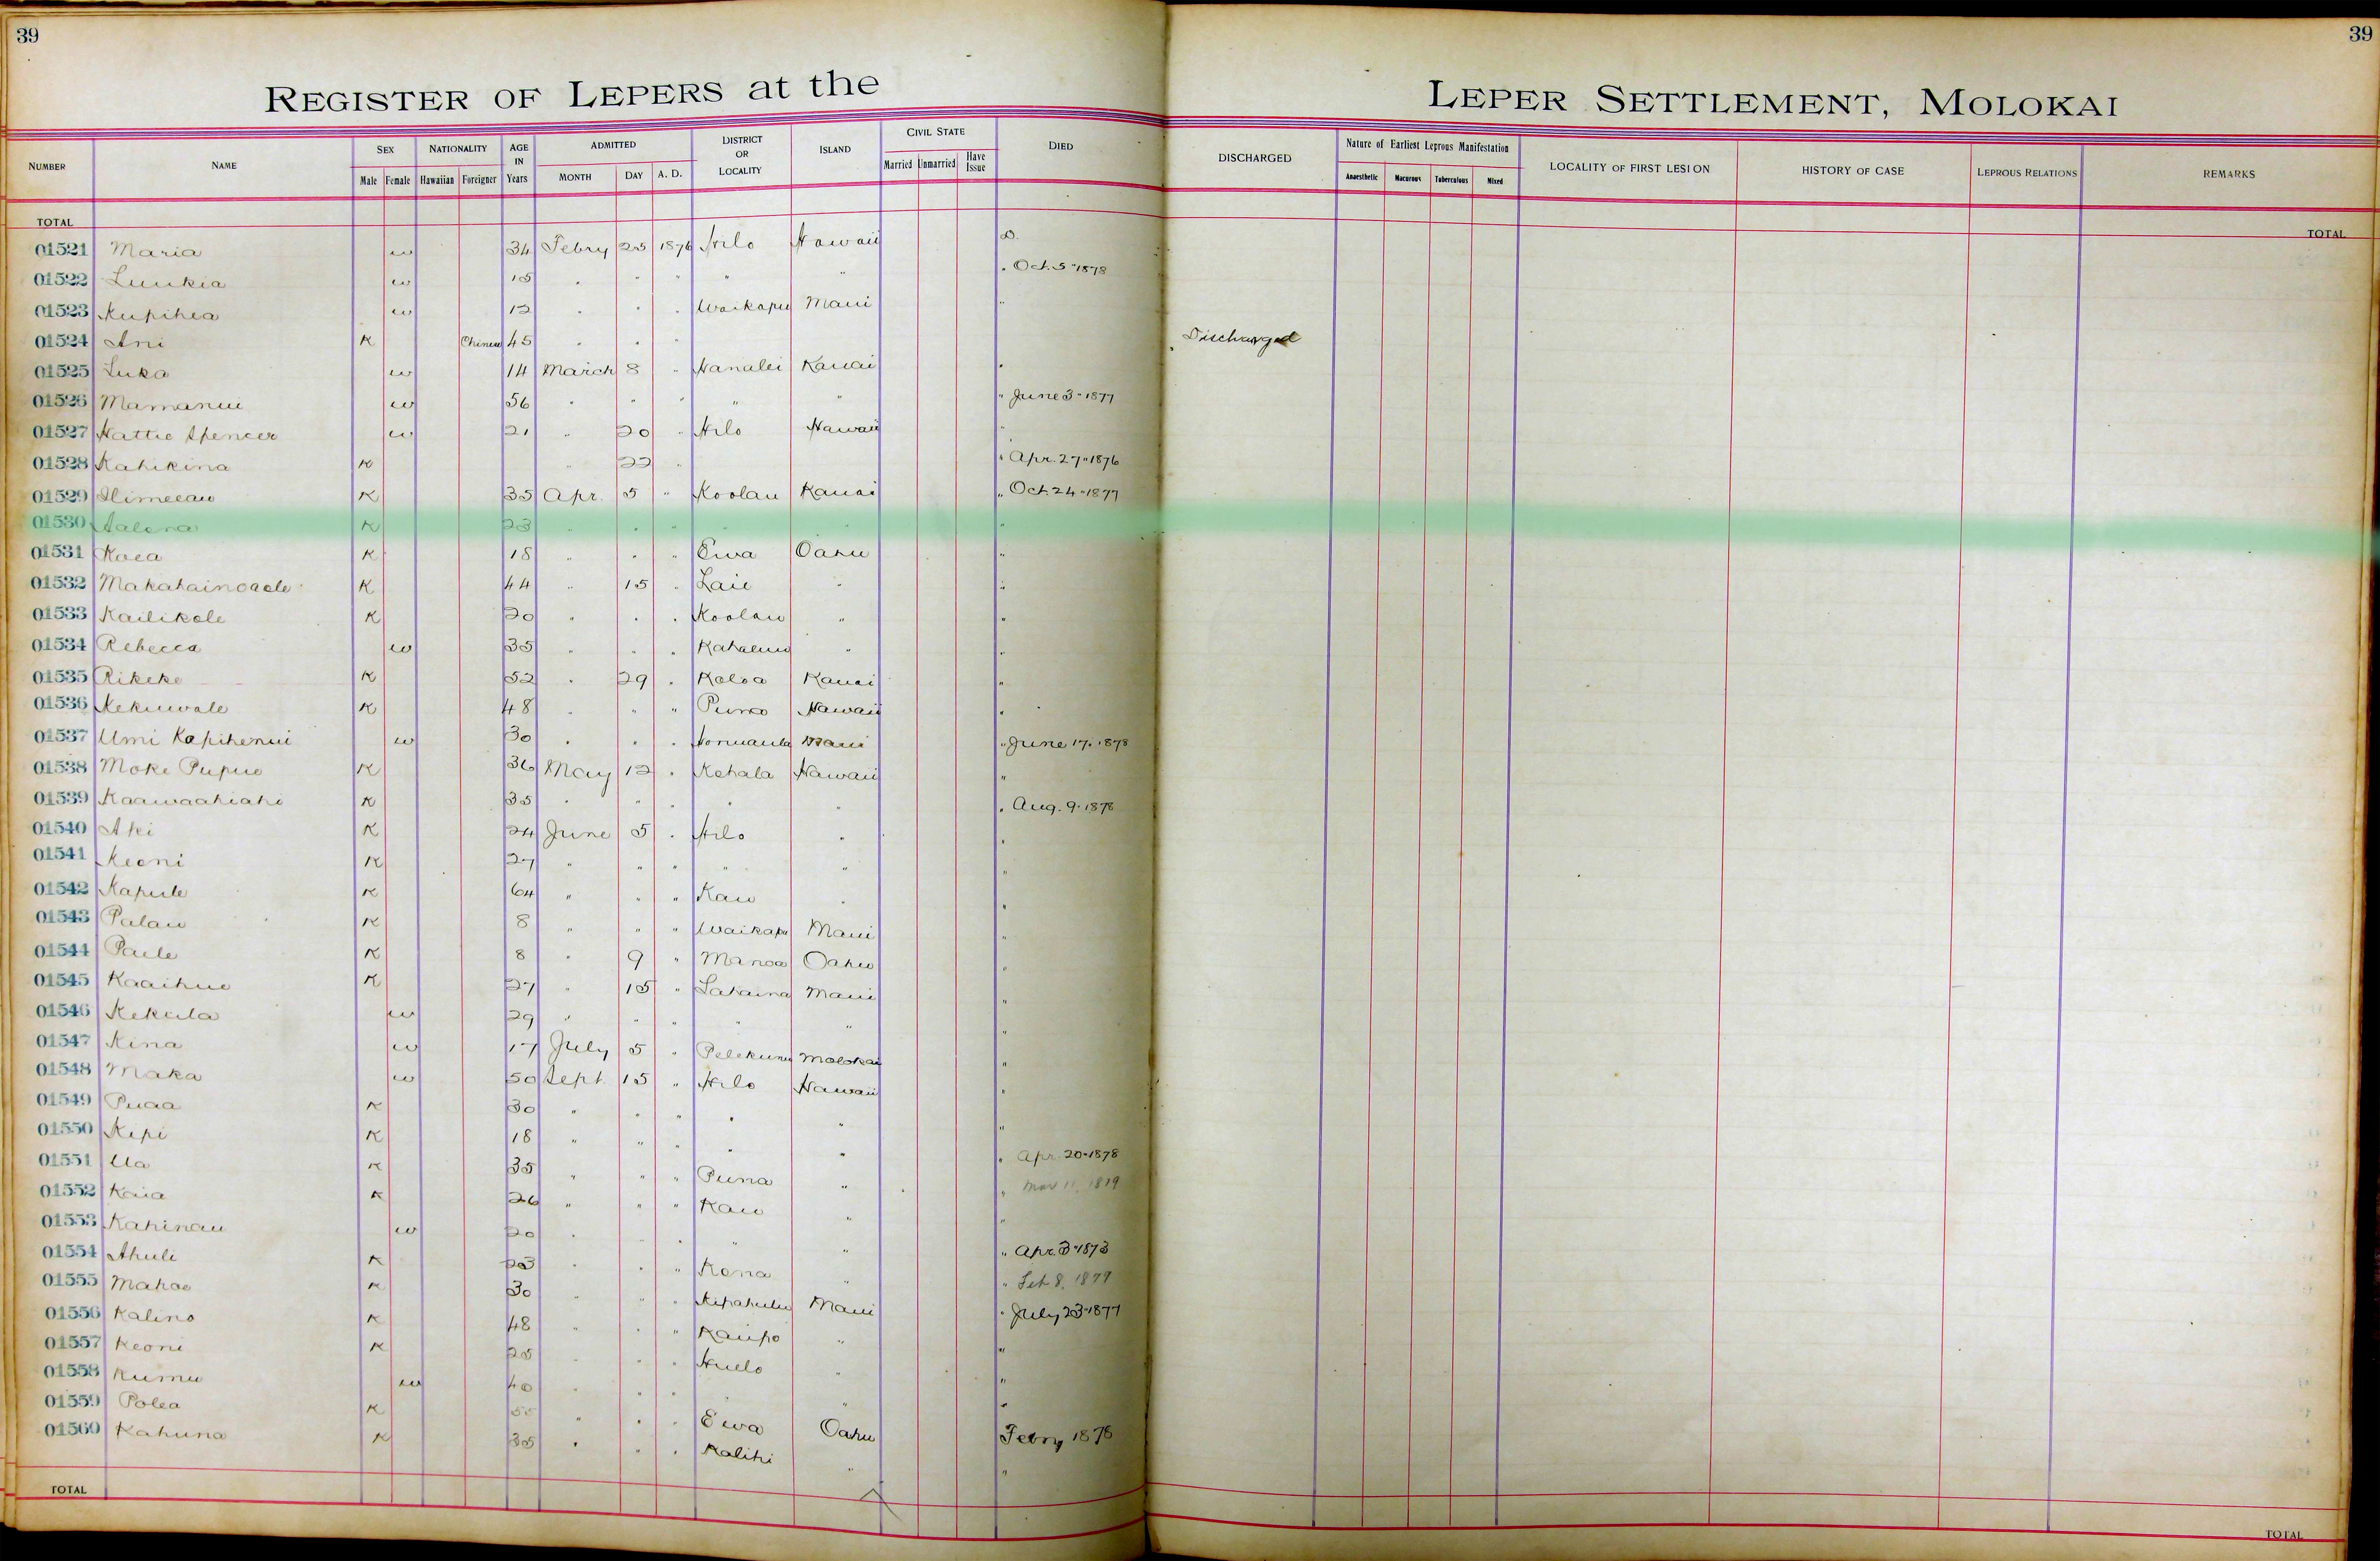 39
39
REGISTER OF LEPERS at the LEPER SETTLEMENT, MOLOKAI
NUMBER NAME SEX Male Female NATIONALITY Hawaiian Foreigner AGE IN Years ADMITTED MONTH DAY A. D. DISTRICT OR LOCALITY ISLAND CIVIL STATE Married Unmarried Have Issue DIED DISCHARGED Nature of Earliest Leprous Manifestation Anaesthetic Macurous Tuberculous Mixed LOCALITY OF FIRST LESION HISTORY OF CASE LEPROUS RELATIONS REMARKS
TOTAL TOTAL
01521 Maria w 34 Febry 25 1876 Hilo Hawaii D.
01522 Luukia w 15 " " " " " " Oct. 5 " 1878
01523 Kupihea w 12 " " " Waikapu Maui "
01524 Ani K Chinese 45 " " " Discharged
01525 Luka w 14 March 8 " Hanalei Kauai "
01526 Mamanui w 56 " " " " " " June 3 " 1877
01527 Hattie Spencer w 21 " 20 " Hilo Hawaii "
01528 Kahikina K " 22 " " Apr. 27 " 1876
01529 K 35 Apr. 5 " Koolau Kauai " Oct. 24 " 1877
01530 K 23 " " " " " "
01531 Koea K 18 " " " Ewa Oahu "
01532 Makahainoaole K 44 " 15 " Laie " "
01533 Kailikole K 20 " " " Koolau " "
01534 Rebecca w 35 " " " Kahaluu " "
01535 Rikeke K 52 " 29 " Koloa Kauai "
01536 Kekuwale K 48 " " " Puna Hawaii "
01537 Umi Kapihenui w 30 " " " Honuaula Maui " June 17. 1878
01538 Moke Pupuo K 36 May 12 " Kohala Hawaii "
01539 Kaawaahiahi K 35 " " " " " " Aug. 9. 1878
01540 Aki K 24 June 5 " Hilo " "
01541 Keoni K 27 " " " " " "
01542 Kapule K 64 " " " Kau " "
01543 Palau K 8 " " " Waikapu Maui "
01544 Paele K 8 " 9 " Manoa Oahu "
01545 Kaaihue K 27 " 15 " Lahaina Maui "
01546 Kekula w 29 " " " " " "
01547 Kina w 17 July 5 " Pelekunu Molokai "
01548 Maka w 50 Sept. 15 " Hilo Hawaii "
01549 Puaa K 30 " " " " " "
01550 Kepi K 18 " " " " " " Apr. 20 " 1878
01551 Ua K 35 " " " Puna " "
01552 Kaia K 26 " " " Kau " "
01553 Kahinau w 20 " " " " " " Apr. 3 " 1873
01554 Ahuli K 23 " " " Kona " " Feb 8. 1879
01555 Mahoe K 30 " " " Kipahulu Maui " July 23 " 1877
01556 Kalino K 48 " " " Kaupo " "
01557 Keoni K 25 " " " Huelo " "
01558 Kumu w 40 " " " " "
01559 Polea K 55 " " " Ewa Oahu Febry 1878
01560 Kahuna K 35 " " " Kalihi " "
TOTAL TOTAL